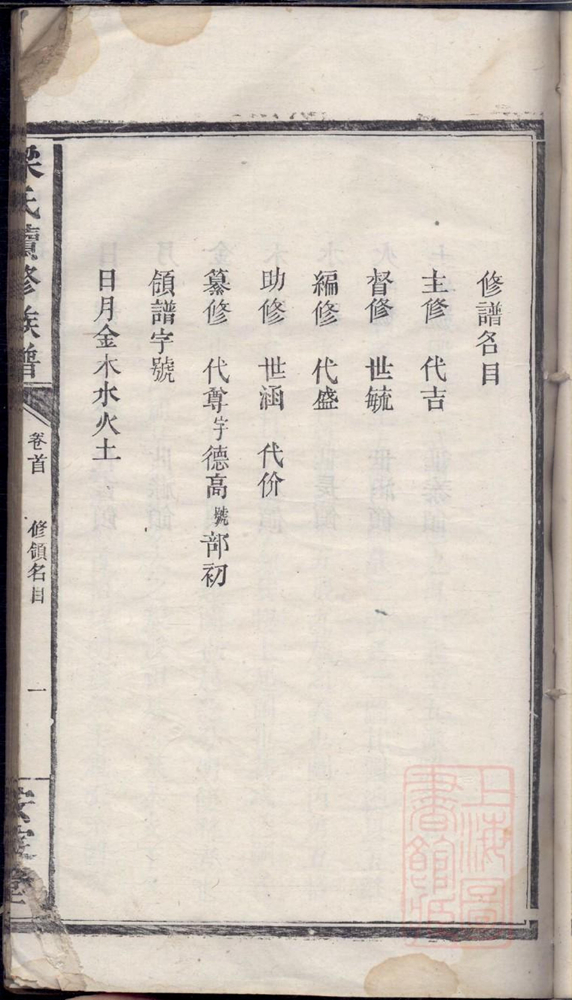 修譜名目
主修　代吉
督修　世毓
編修　代盛
助修　世涵　代价
纂修　代尊字德高號部初
領譜字號
日月金木水火土
氏續修族譜
卷首
修領名目
一
上海圖書館藏